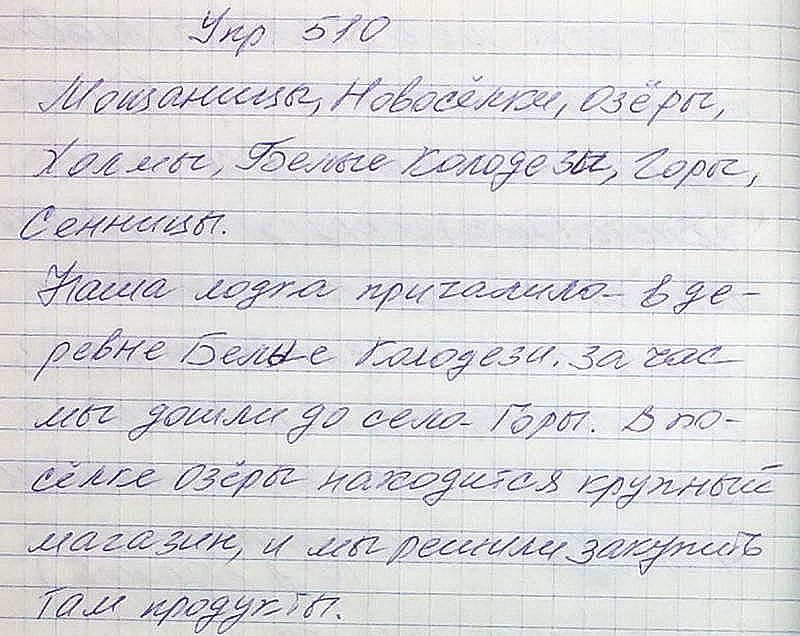 Упр 510
Мощаницы, Новосёлки, Озёры,
Холмы, Белые Колодезы, Горы,
Сенницы.
Наша лодка причалила в де-
ревне Белые Колодези. За час
мы дошли до села Горы. В по-
сёлке Озёры находится крупный
магазин, и мы решили закупить
там продукты.